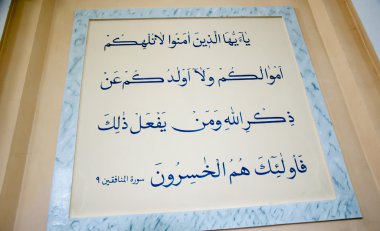 يٰٓاَيُّهَا الَّذِينَ اٰمَنُوا لَا تُلْهِكُمْ
اَمْوَالُكُمْ وَلَآ اَوْلَادُكُمْ عَنْ
ذِكْرِ اللهِ وَمَنْ يَفْعَلْ ذٰلِكَ
فَاُولٰٓئِكَ هُمُ الْخٰسِرُونَ سورة المنافقين ٩